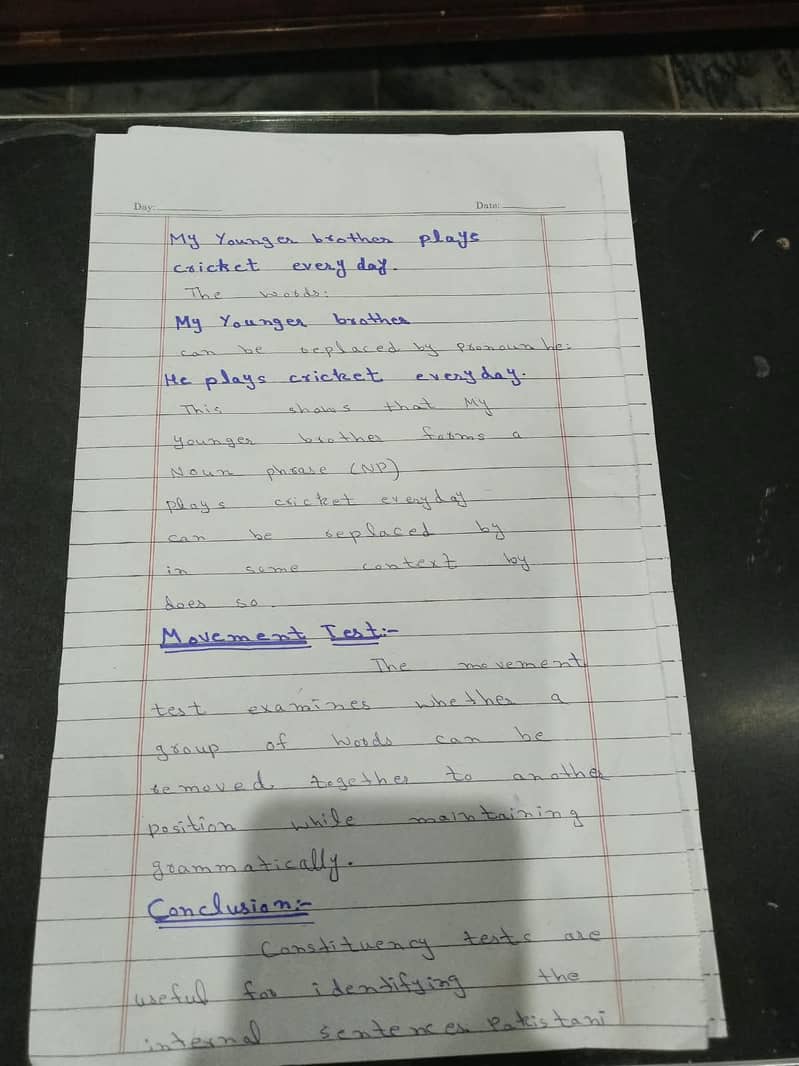 Day:
Date:
My Younger brother plays
cricket every day.
The words:
My Younger brother
can be replaced by pronoun he:
He plays cricket everyday.
This shows that My
younger brother forms a
Noun phrase (NP)
plays cricket everyday
can be replaced by
in some context by
does so.
Movement Test:-
The movement
test examines whether a
group of words can be
removed together to another
position while maintaining
grammatically.
Conclusion:-
Constituency tests are
useful for identifying the
internal sentences Pakistani